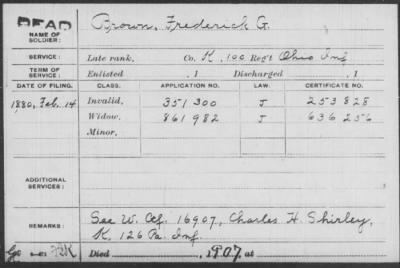 DEAD
NAME OF SOLDIER: Brown, Frederick G.
SERVICE: Late rank, Co. K, 100 Reg't Ohio Inf
TERM OF SERVICE: Enlisted , 1 Discharged , 1
DATE OF FILING. CLASS. APPLICATION NO. LAW. CERTIFICATE NO.
1880, Feb. 14 Invalid, 351 300 J 253 828
Widow, 861 982 J 636 256
Minor,
ADDITIONAL SERVICES:
REMARKS: See W. Ctf. 16907, Charles H. Shirley,
K, 126 Pa. Inf.
Died , 1907, at